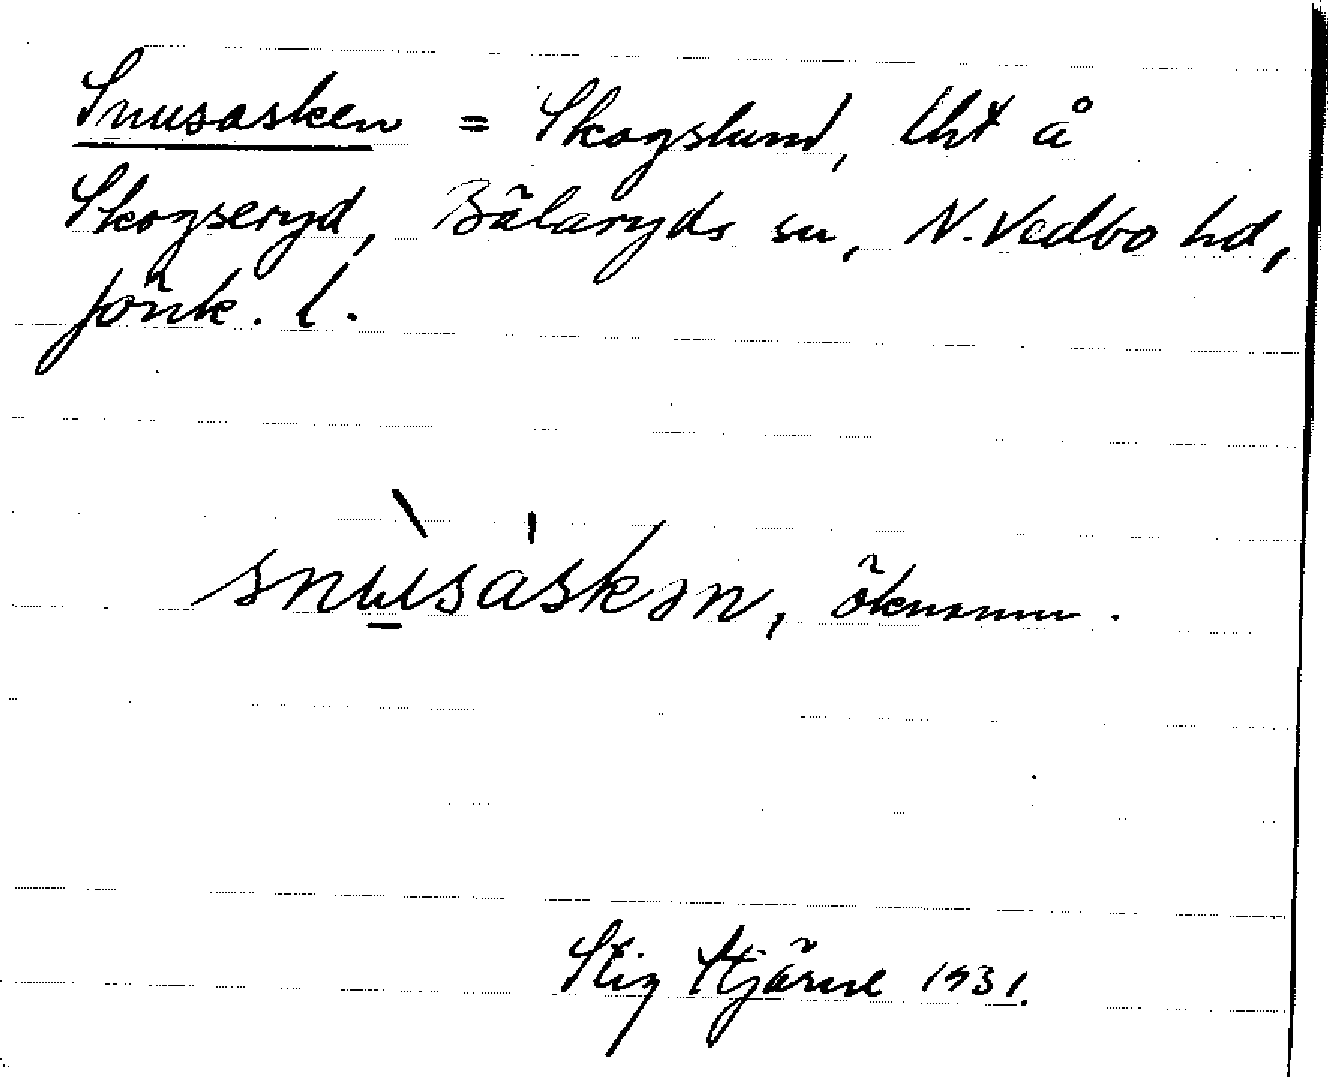 Snusasken = Skogslund, lht å
Skogseryd, Bälaryds sn, N. Vedbo hd,
Jönk. l.
snù̲sáskən, öknamn.
Stig Stjärne 1931.